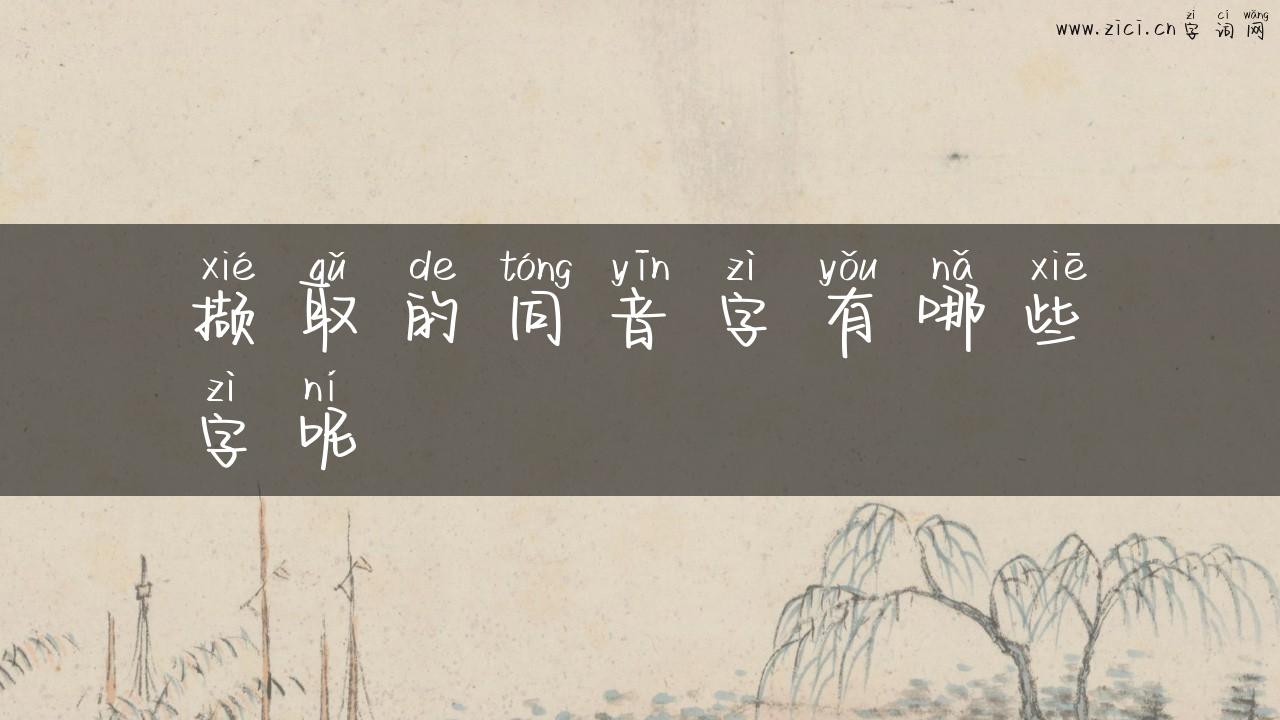 zì cí wǎng
www.zici.cn 字词网
xié qǔ de tóng yīn zì yǒu nǎ xiē
撷取的同音字有哪些
zì ní
字呢